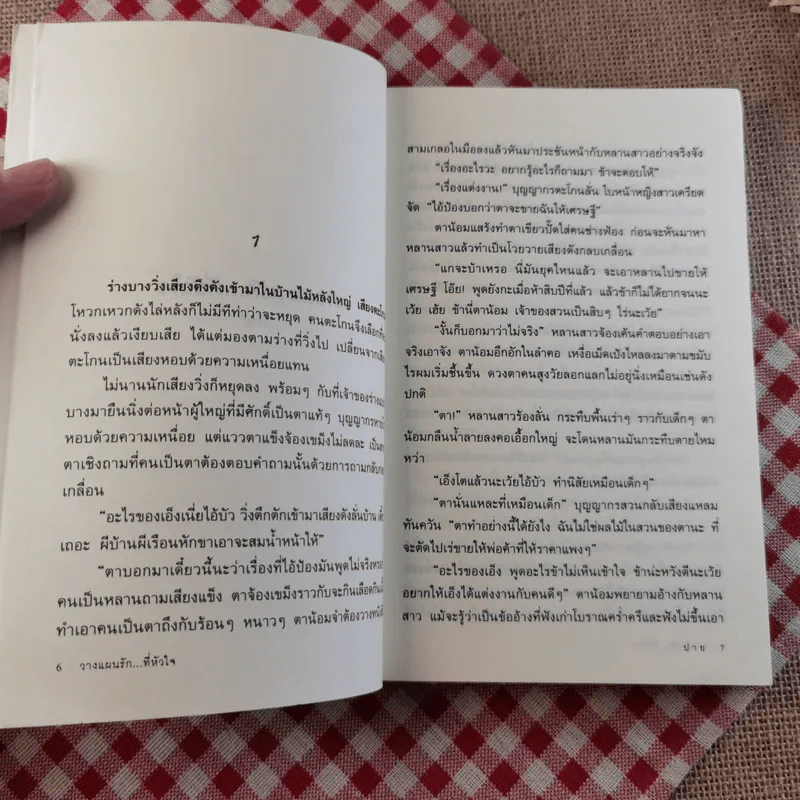 1
ร่างบางวิ่งเสียงตึงตังเข้ามาในบ้านไม้หลังใหญ่ เสียงตะโกน
โหวกเหวกดังไล่หลังก็ไม่มีทีท่าว่าจะหยุด คนตะโกนจึงเลือกที่จะ
นั่งลงแล้วเงียบเสีย ได้แต่มองตามร่างที่วิ่งไป เปลี่ยนจากเสียง
ตะโกนเป็นเสียงหอบด้วยความเหนื่อยแทน
ไม่นานนักเสียงวิ่งก็หยุดลง พร้อมๆ กับที่เจ้าของร่าง
บางมายืนนิ่งต่อหน้าผู้ใหญ่ที่มีศักดิ์เป็นตาแท้ๆ บุญญากร
หอบด้วยความเหนื่อย แต่แววตาแข็งจ้องเขม็งไม่ลดละ
ตาเชิงถามที่คนเป็นตาต้องตอบคำถามนั้นด้วยการถามกลับ
เกลื่อน
“อะไรของเอ็งเนี่ยไอ้บัว วิ่งตึกตักเข้ามาเสียงดังลั่นบ้าน
เถอะ ผีบ้านผีเรือนหักขาเอาจะสมน้ำหน้าให้”
“ตาบอกมาเดี๋ยวนี้นะว่าเรื่องที่ไอ้ป๋องมันพูดไม่จริง
คนเป็นหลานถามเสียงแข็ง ตาจ้องเขม็งราวกับจะกินเลือดกินเนื้อ
ทำเอาคนเป็นตาถึงกับร้อนๆ หนาวๆ ตาน้อมจำต้องวาง
6 วางแผนรัก...ที่หัวใจ
สามเกลอในมือลงแล้วหันมาประชันหน้ากับหลานสาวอย่างจริงจัง
“เรื่องอะไรวะ อยากรู้อะไรก็ถามมา ข้าจะตอบให้”
“เรื่องแต่งงาน!” บุญญากรตะโกนลั่น ใบหน้าหญิงสาวเครียด
จัด “ไอ้ป๋องบอกว่าตาจะขายฉันให้เศรษฐี”
ตาน้อมแสร้งทำตาเขียวปั๊ดใส่คนช่างฟ้อง ก่อนจะหันมาหา
หลานสาวแล้วทำเป็นโวยวายเสียงดังกลบเกลื่อน
“แกจะบ้าเหรอ นี่มันยุคไหนแล้ว จะเอาหลานไปขายให้
เศรษฐี โอ๊ย! พูดยังกะเมื่อห้าสิบปีที่แล้ว แล้วข้าก็ไม่ได้ยากจนนะ
เว้ย เฮ้ย ข้านี่ตาน้อม เจ้าของสวนเป็นสิบๆ ไร่นะเว้ย”
“งั้นก็บอกมาว่าไม่จริง” หลานสาวจ้องเค้นคำตอบอย่างเอา
จริงเอาจัง ตาน้อมอึกอักในลำคอ เหงื่อเม็ดเป้งไหลลงมาตามขมับ
ไรผมเริ่มชื้นขึ้น ดวงตาคนสูงวัยลอกแลกไม่อยู่นิ่งเหมือนเช่นดัง
ปกติ
“ตา!” หลานสาวร้องลั่น กระทืบพื้นเร่าๆ ราวกับเด็กๆ ตา
น้อมกลืนน้ำลายลงคอเอื๊อกใหญ่ จะโดนหลานมันกระทืบตายไหม
หว่า
“เอ็งโตแล้วนะเว้ยไอ้บัว ทำนิสัยเหมือนเด็กๆ”
“ตานั่นแหละที่เหมือนเด็ก” บุญญากรสวนกลับเสียงแหลม
ทันควัน “ตาทำอย่างนี้ได้ยังไง ฉันไม่ใช่ผลไม้ในสวนของตานะ ที่
จะตัดไปเร่ขายให้พ่อค้าที่ให้ราคาแพงๆ”
“อะไรของเอ็ง พูดอะไรข้าไม่เห็นเข้าใจ ข้าน่ะหวังดีนะเว้ย
อยากให้เอ็งได้แต่งงานกับคนดีๆ” ตาน้อมพยายามอ้างกับหลาน
สาว แม้จะรู้ว่าเป็นข้ออ้างที่ฟังเก่าโบราณคร่ำครึและฟังไม่ขึ้นเอา
ปาย 7